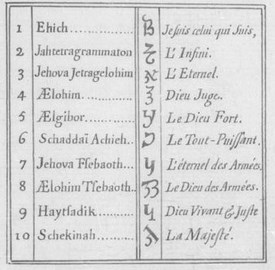 1 Ehich............ Je suis celui qui suis,
2 Jahtetragrammaton L'Infini.
3 Jehova Jetragelohim L'Eternel.
4 Ælohim............ Dieu Juge.
5 Ælgibor............ Le Dieu Fort.
6 Schaddaï Achieh... Le Tout-Puissant.
7 Jehova Tsebaoth... L'éternel des Armées.
8 Ælohim Tsebaoth.. Le Dieu des Armées.
9 Haytsadik......... Dieu Vivant & Juste
10 Schekinah......... La Majesté.